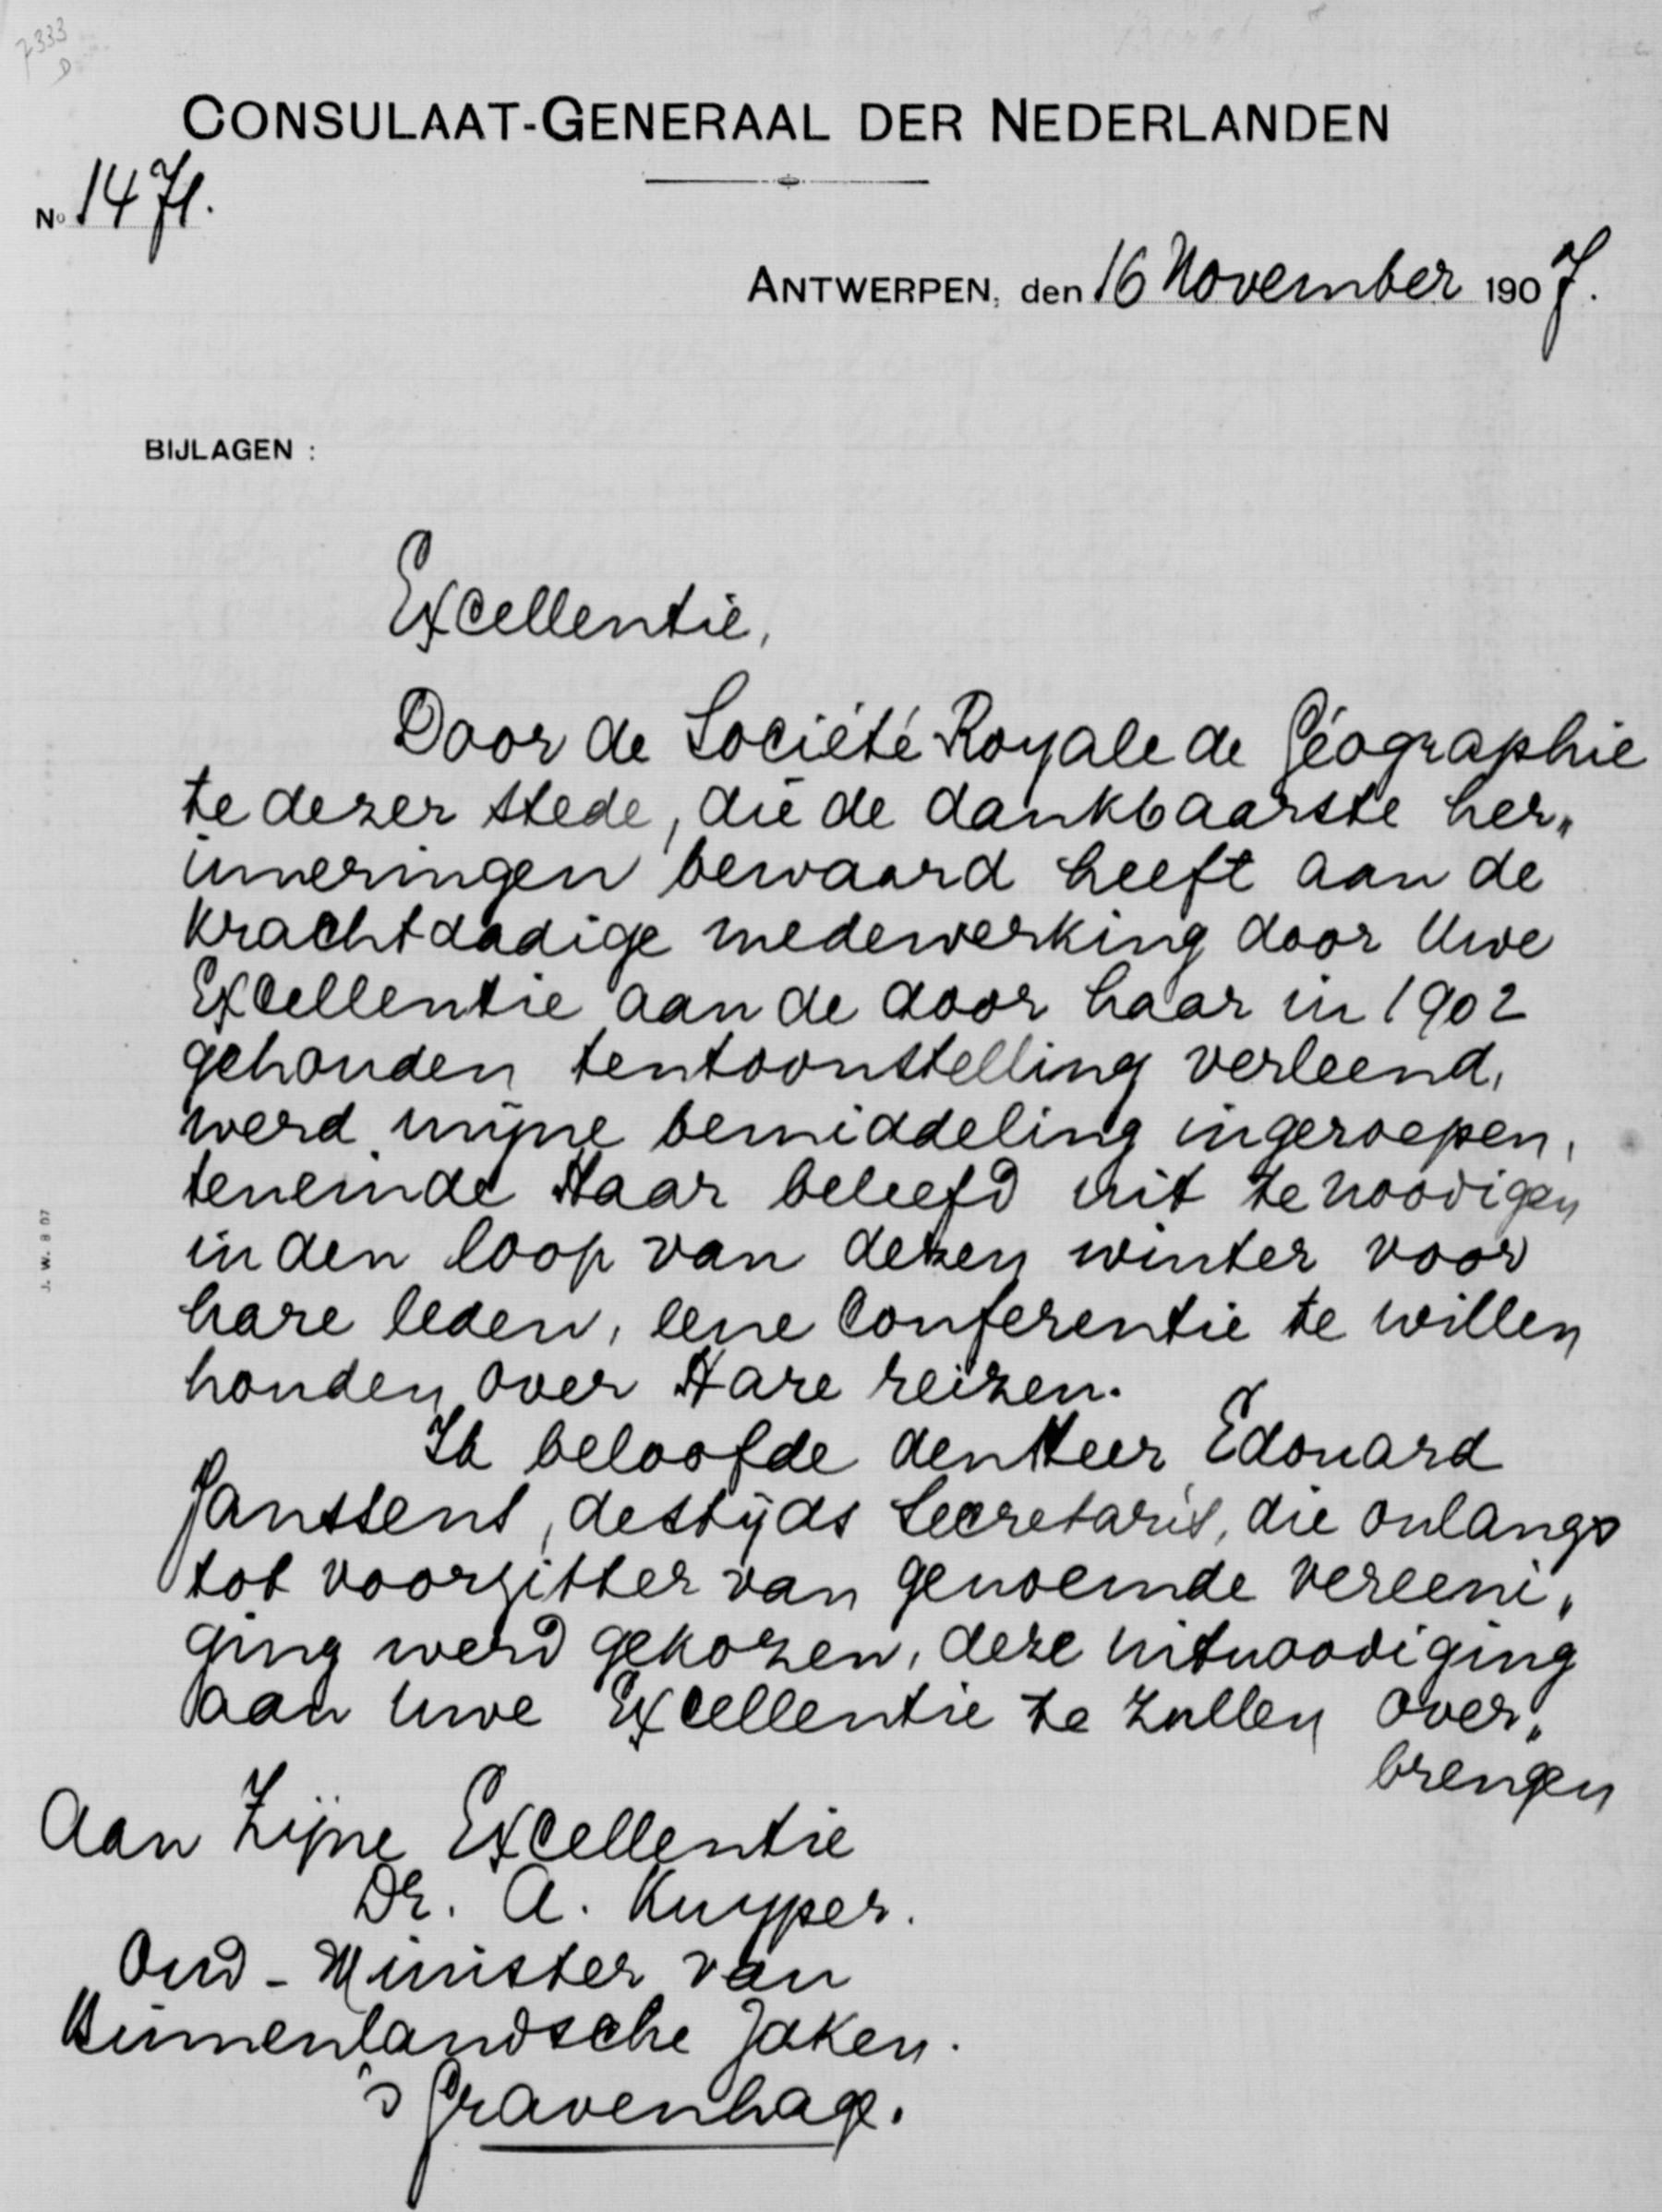 7333
D
CONSULAAT-GENERAAL DER NEDERLANDEN
No 1471.
ANTWERPEN, den 16 November 1907.
BIJLAGEN :
Excellentie,
Door de Société Royale de Géographie
te dezer stede, die de dankbaarste her„
inneringen bewaard heeft aan de
krachtdadige medewerking door Uwe
Excellentie aan de door haar in 1902
gehouden tentoonstelling verleend,
werd mijne bemiddeling ingeroepen,
teneinde Haar beleefd uit te noodigen
in den loop van dezen winter voor
hare leden, eene Conferentie te willen
houden over Hare reizen.
Ik beloofde den Heer Edouard
Janssens, destijds Secretaris, die onlangs
tot voorzitter van genoemde vereeni„
ging werd gekozen, deze uitnoodiging
aan Uwe Excellentie te zullen over„
brengen
Aan Zijne Excellentie
Dr. A. Kuyper.
Oud-Minister van
Binnenlandsche Zaken.
's Gravenhage.
J. W. 8 07